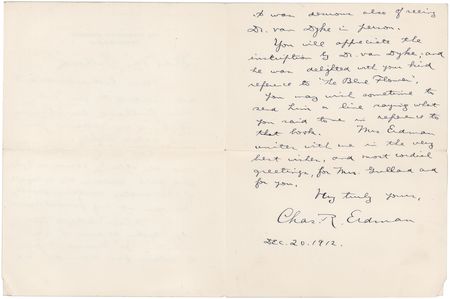 I was desirous also of seeing
Dr. van Dyke in person.
You will appreciate the
inscription by Dr. van Dyke; and
he was delighted with your kind
reference to "The Blue Flower".
You may wish sometime to
send him a line saying what
you said to me in reference to
that book. Mrs Erdman
unites with me in the very
best wishes, and most cordial
greetings, for Mrs. and
for you.
Very truly yours,
Chas. R. Erdman
Dec. 20. 1912.